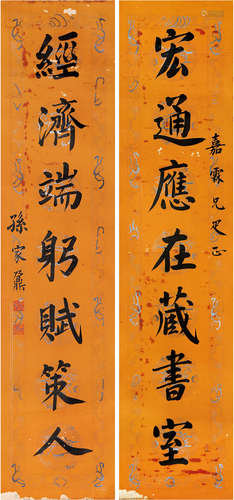 宏通應在藏書室
嘉霖兄足正
經濟端躬賦策人
孫家鼐